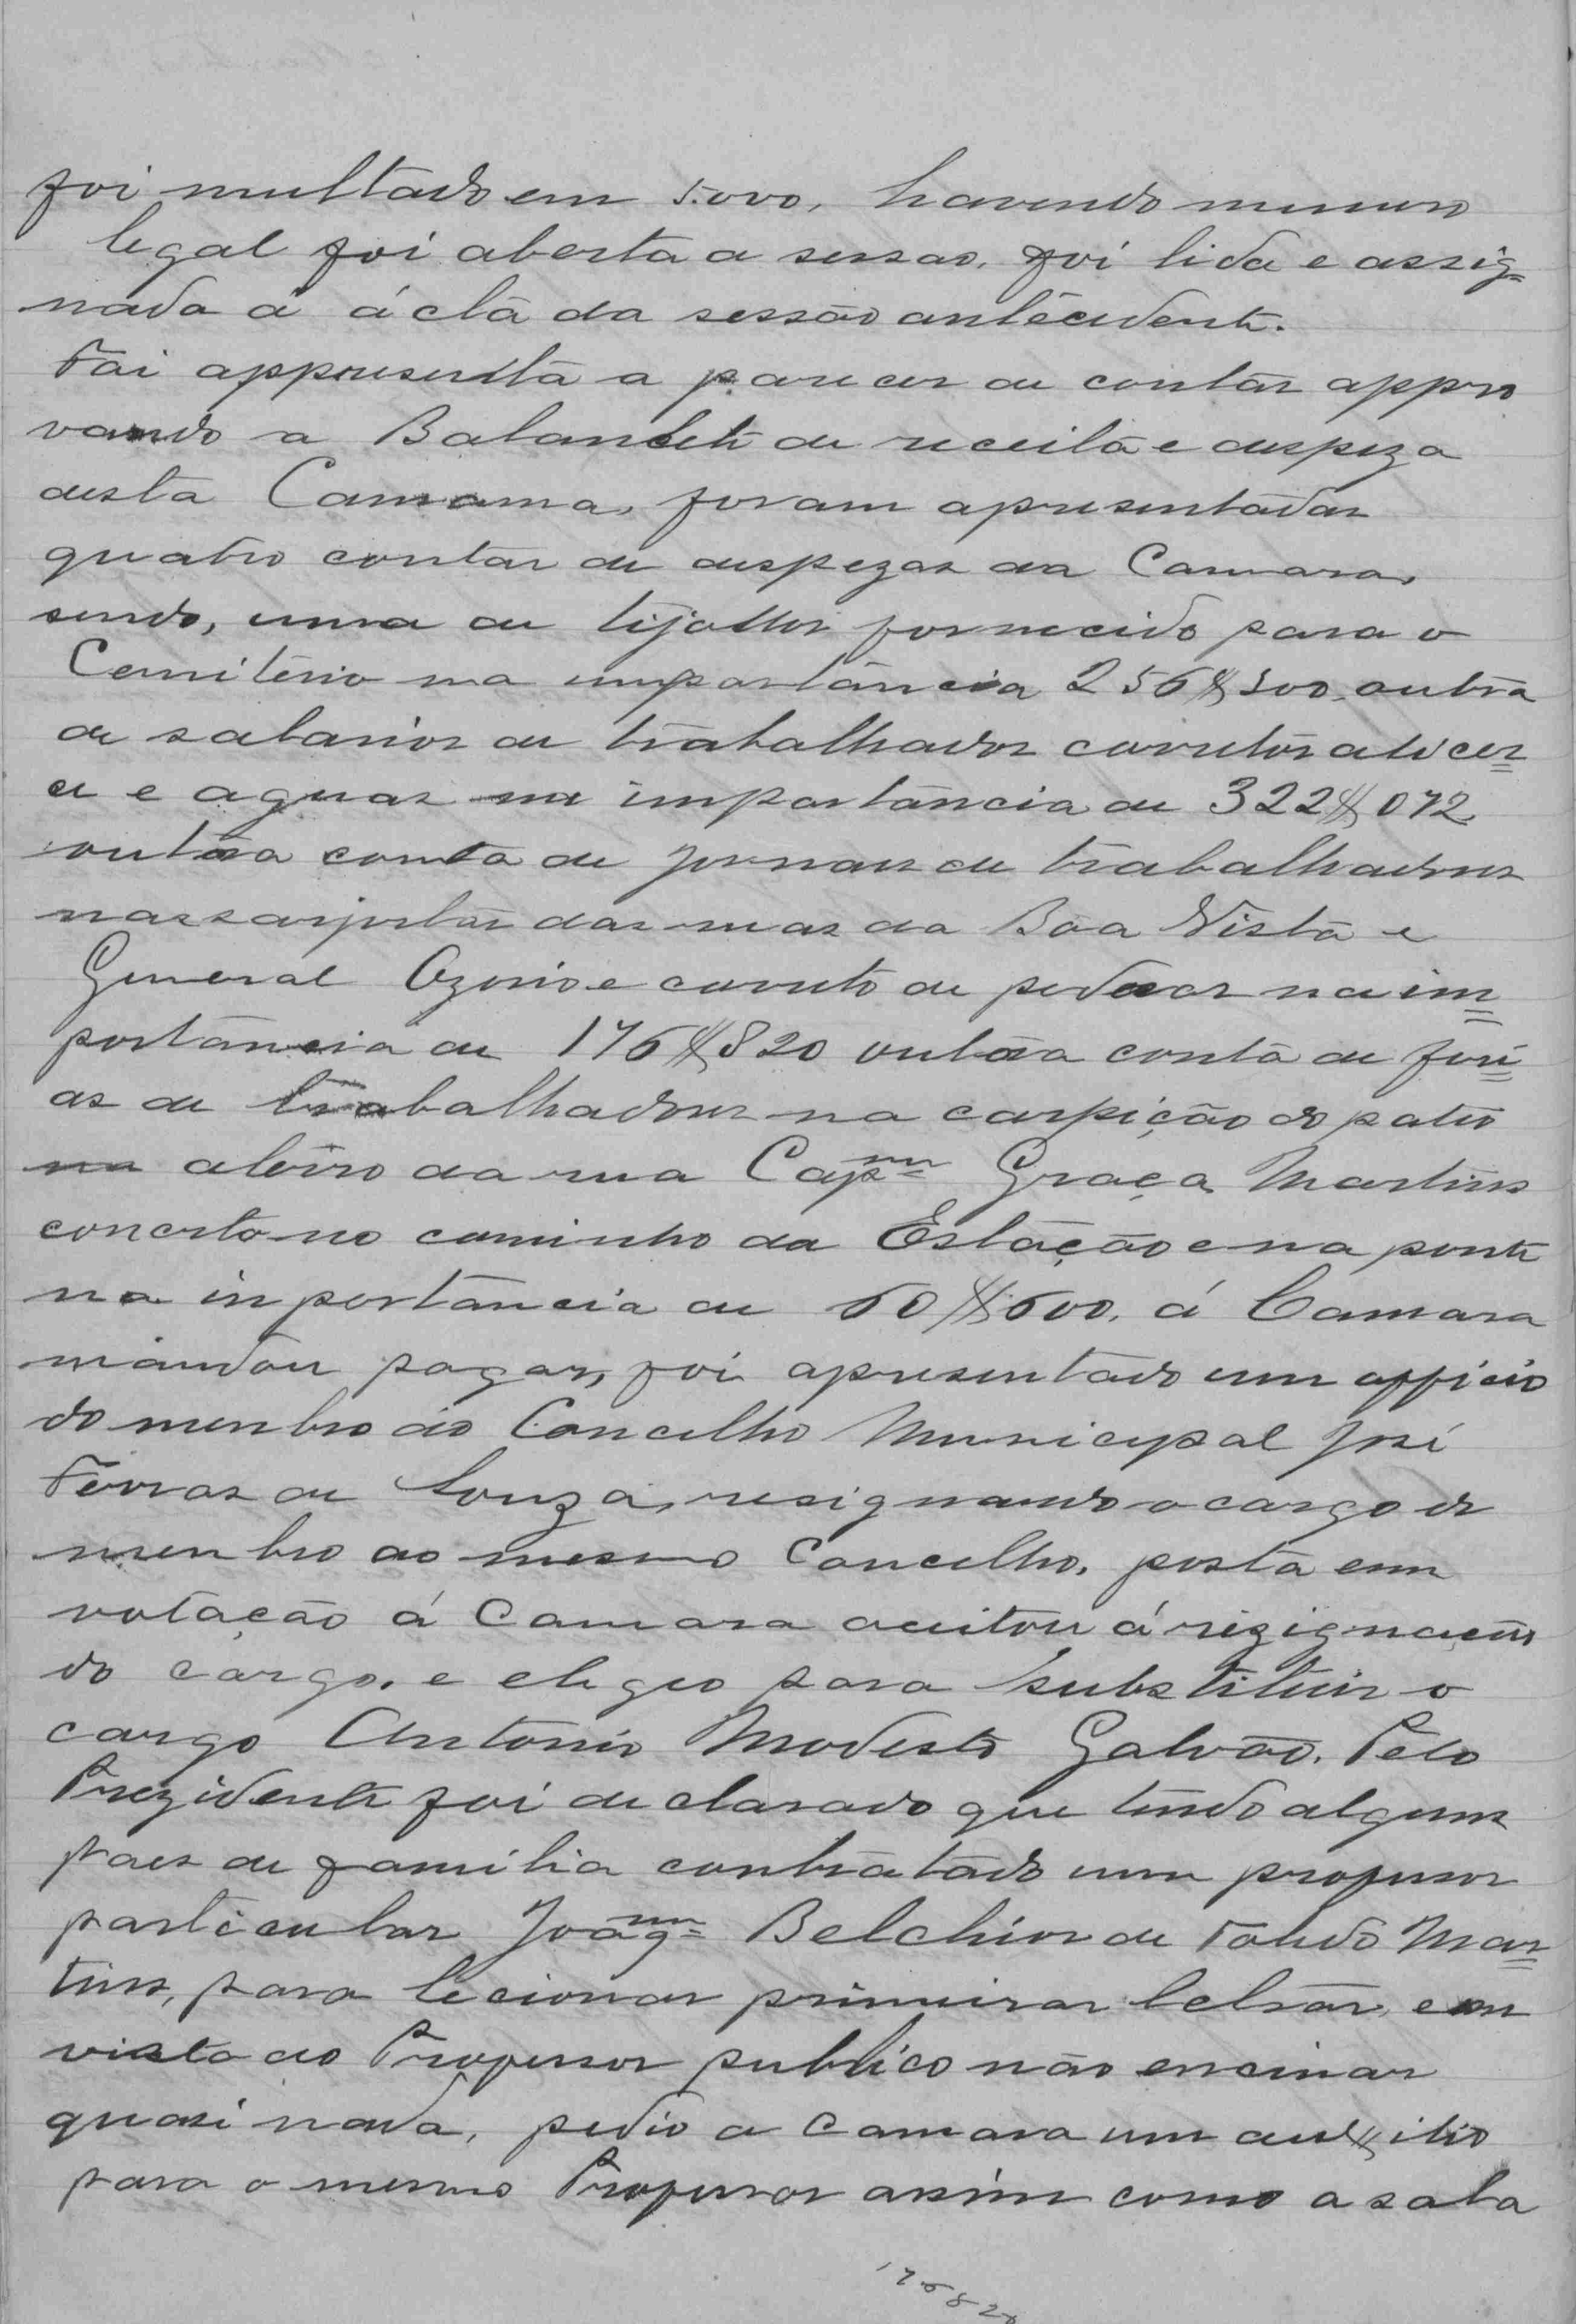 foi multado em 5.000, havendo numero
legal foi aberta a sessao. foi lida e assig=
nada a ácta da sessão antecedente.
Foi appresenta a parecer de contas appro
vando a Balancete de receita e despeza
desta Camara, foram apresentadas
quatro contas de despezas da Camara,
sendo, uma de tijollos fornecido para o
Cemitério na importância 256$500 outra
de salarios de trabalhadores carretos aticer
ce e aguas na importância de 322$072
outra conta de jornaes de trabalhadores
nas sarjetas das ruas da Bôa Vista e
General Ozorio e carreto de pedras na im=
portancia de 176$820 outra conta de feri=
as de trabalhadores na carpição do pateo
aterro da rua Capm Graça Martins
concerto no caminho da Estação e na ponte
na inportância de 60$600. á Camara
mandou pagar, foi apresentado um officio
do menbro do Concelho Municipal José
Ferras de Souza, resignando o cargo de
menbro do mesmo Concelho, posta em
votação á Camara aceitou á rezignação
do cargo. e elegeo para substituir o
cargo Antonio Modesto Galvão. Pelo
Prezidente foi declarado que tendo alguns
paes de familia contratado um professor
particular Joaqm Belchior de Toledo Mar=
tins, para lecionar primeiras letras, em
vista do Professor publico não ensinar
quasi nada, pedio a Camara um auxilio
para o mesmo Professor assim como a sala
176820